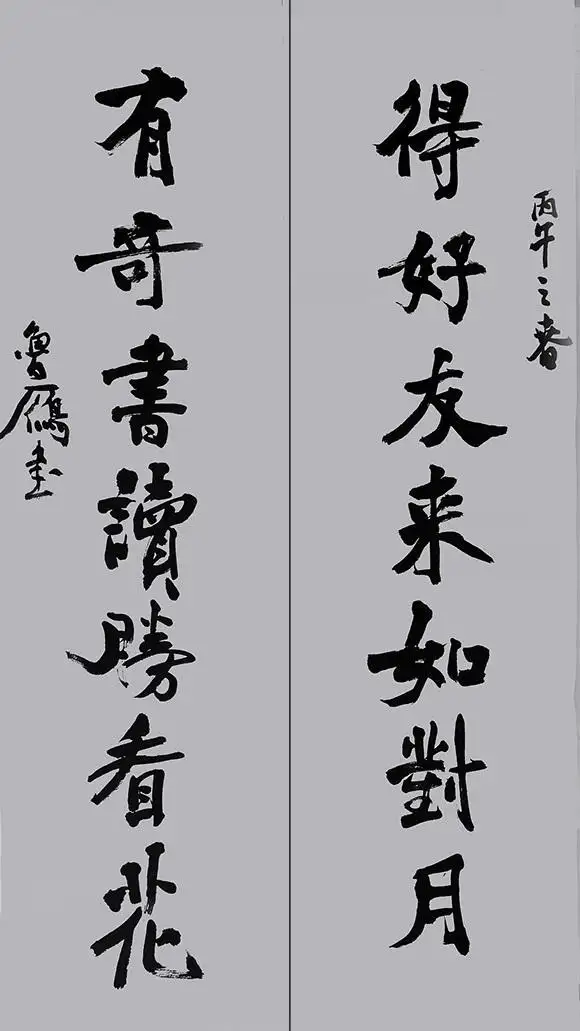 丙午之春
得好友来如對月
有奇書讀勝看花
魯雁書